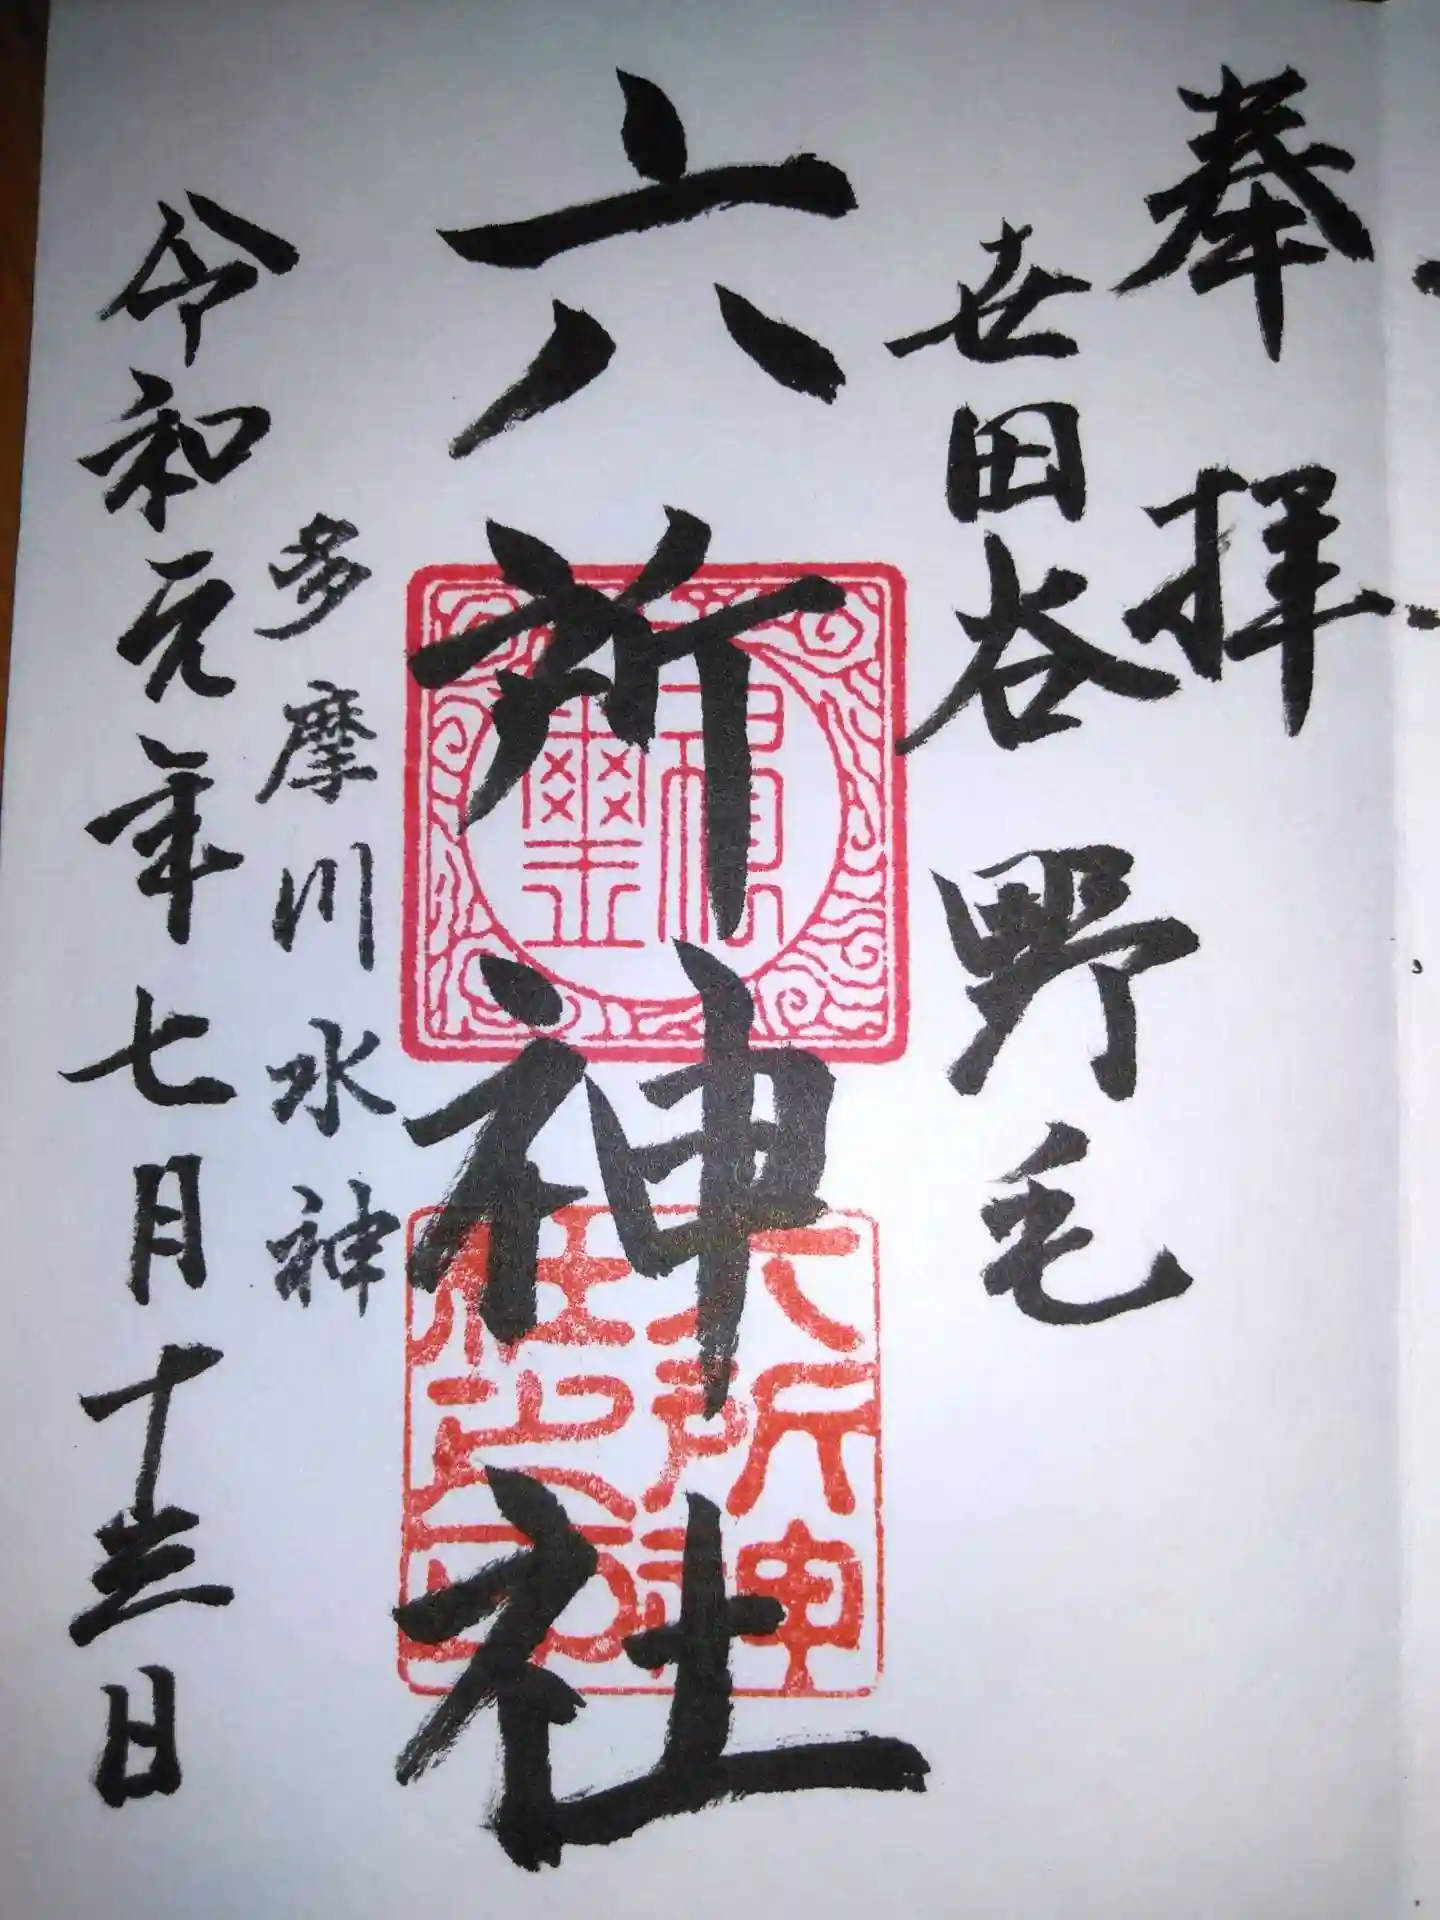 奉拝
世田谷 野毛
六所神社
多摩川水神
令和元年七月十三日
六所神
社之印